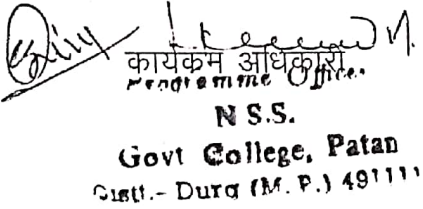 कार्यक्रम अधिकारी
Programme Officer
N S.S.
Govt College, Patan
Distt.- Durg (M. P.) 491111